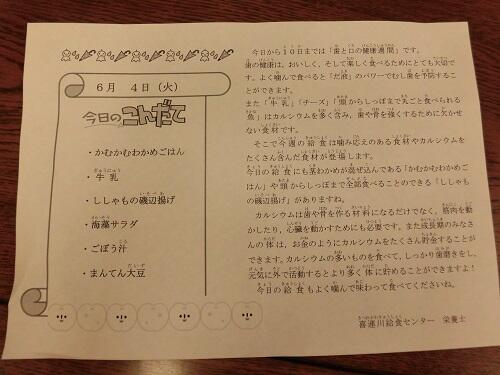 6月 4日（火）
今日のこんだて
・かむかむわかめごはん
牛乳
・ししゃもの磯辺揚げ
・海藻サラダ
・ごぼう汁
・まんてん大豆
今日から10日までは「歯と口の健康週間」です。
歯の健康は、おいしく、そして楽しく食べるためにとても大切で
す。よく噛んで食べると「だ液」のパワーでむし歯を予防するこ
とができます。
また「牛乳」「チーズ」「頭からしっぽまで丸ごと食べられる
魚」はカルシウムを多く含み、歯や骨を強くするために欠かせ
ない食材です。
そこで今週の給食は噛み応えのある食材やカルシウムを
たくさん含んだ食材が登場します。
今日の給食にも茎わかめが混ぜ込んである「かむかむわかめご
はん」や頭からしっぽまで全部食べることのできる「ししゃも
の磯辺揚げ」がありますね。
カルシウムは歯や骨を作る材料になるだけでなく、筋肉を動
かしたり、心臓を動かすためにも必要です。また成長期のみなさ
んの体は、お金のようにカルシウムをたくさん貯金することが
できます。カルシウムの多いものを食べて、しっかり歯磨きをし、
元気に外で活動するとより多く体に貯めることができますよ！
今日の給食もよく噛んで味わって食べてくださいね。
喜連川給食センター 栄養士